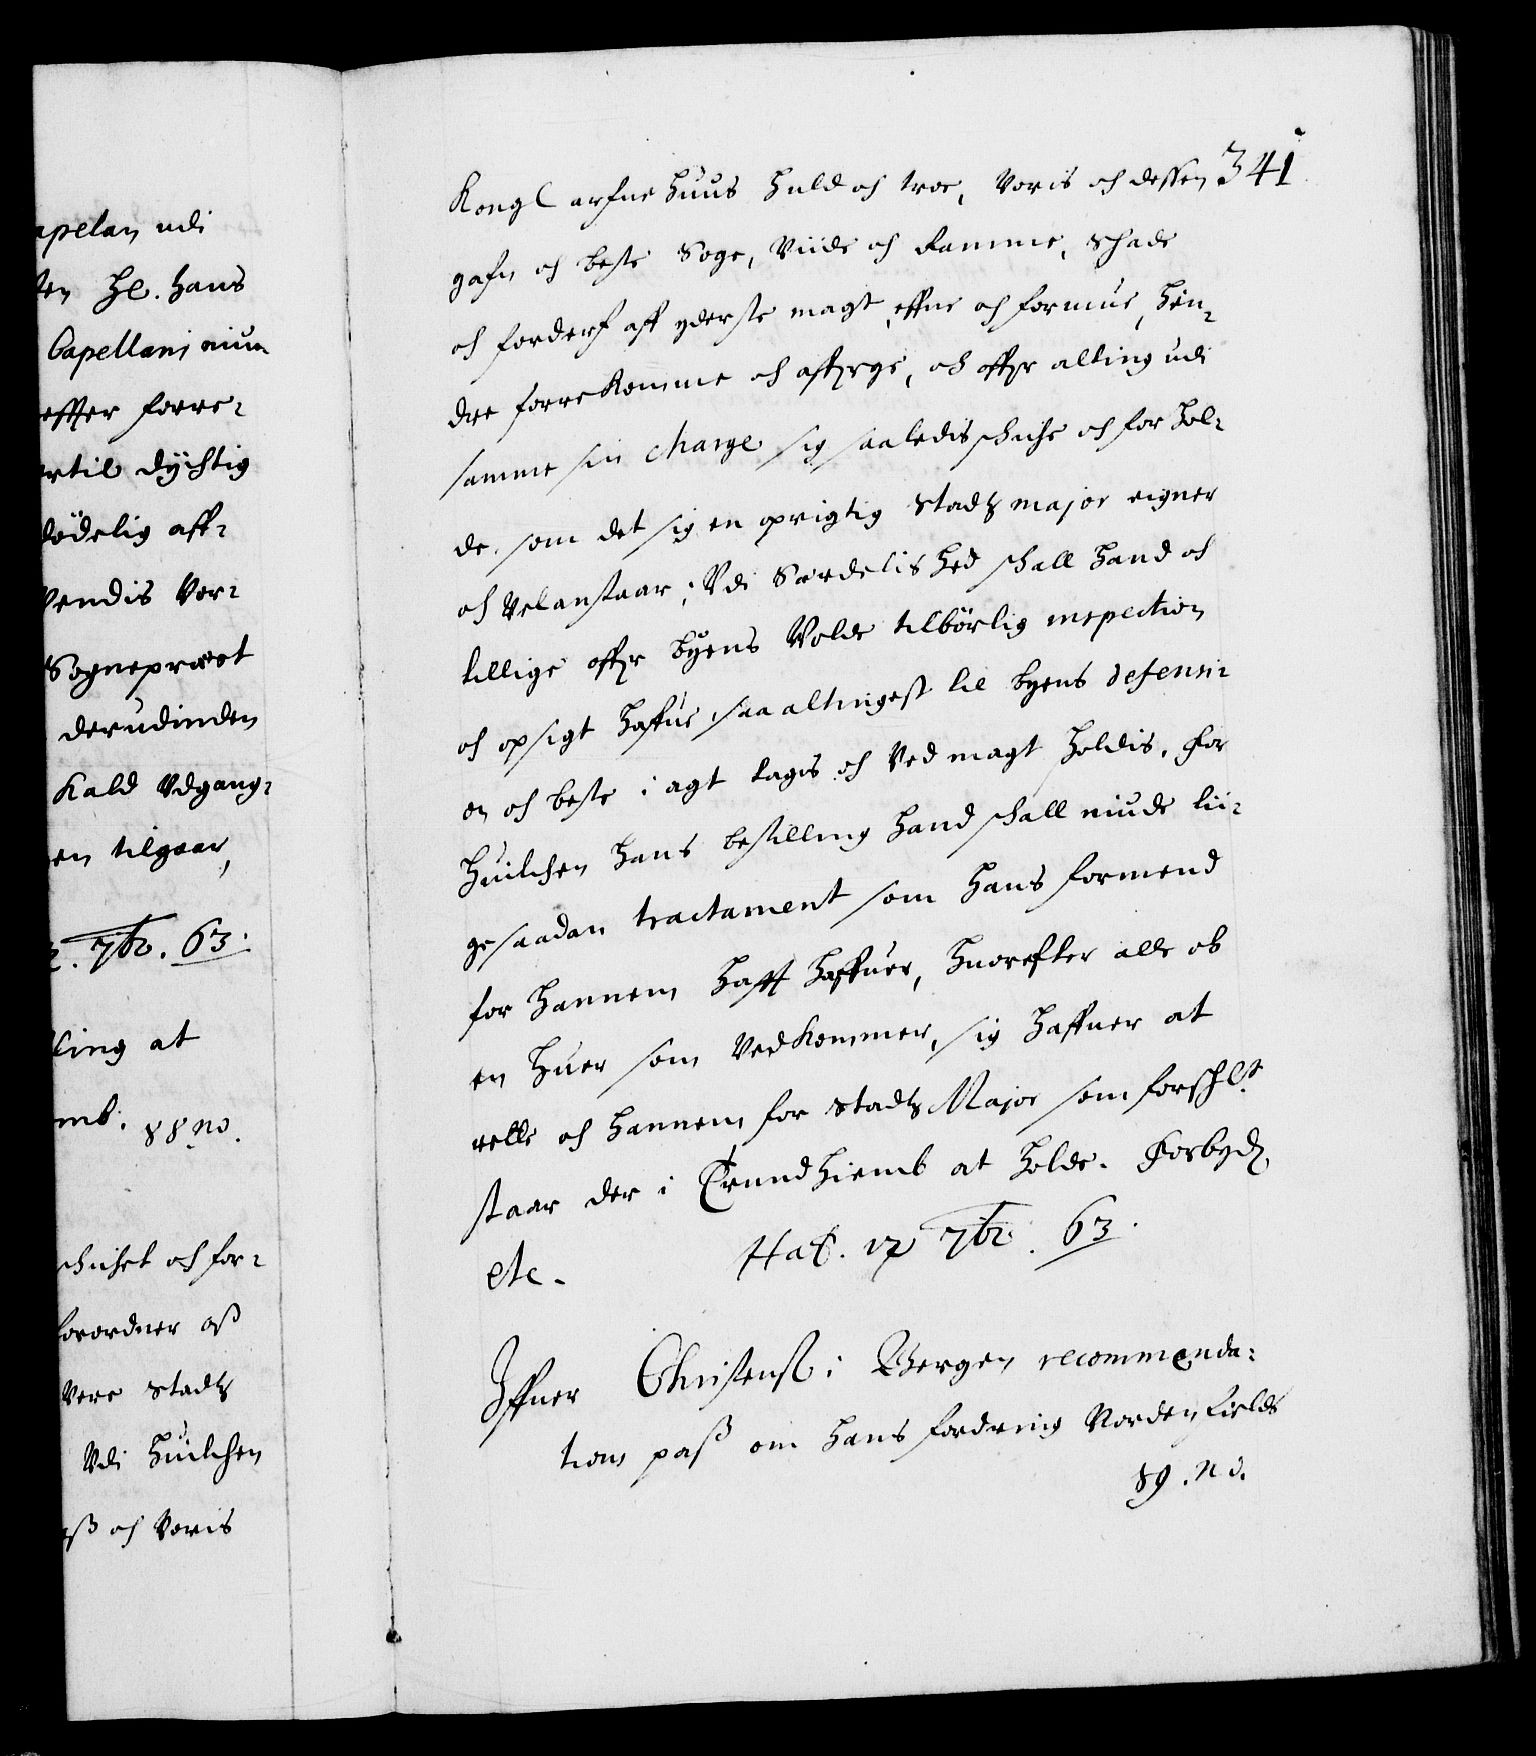 apelan udi
ten Hl. Hans
Capellani mun
effter forre-
ertil dychtig
dödelig aff-
Vendis Vor-
Sogneprest
derudinden
Kald Udgang-
en tilgaar,
7br. 63.
ling at
mb. 88 no.
schichet och for-
forordner oß
Vere Stadtz
Udi Huilchen
oß och Voris
341
Kongl arfue Huus Huld och troe, Voris och dessen
gafn och beste Söge, Viide och Ramme, Schade
och forderf aff yderste magt, effne och formue, Hin-
dre forrekomme och affuerge, och offr alting udi
samme sin charge sig saaledis schiche och forhol-
de, som det sig en oprigtig Stadtz major eigner
och Velanstaar; Udi Særdelished schall Hand och
tillige offr byens Volde tilbörlig inspection
och opsigt haffue, saa altingest til byens defensi-
on och beste i agt tages och Ved magt holdis. For
Huilchen Hans bestilling Hand schall niude lii-
ge saadan tractament som Hans formend
for Hannem Hafft Haffuer, Huorefter alle oc
en Huer som Vedkommer, sig Haffuer at
rette och Hannem for Stadtz Major som forschlt
staar der i Trundhiemb at Holde. Forbydz
etc. Haf. 17 7br. 63.
Iffuer Christens: i Bergen recommenda-
tions paß om Hans fordring Nordenfields
89. no.